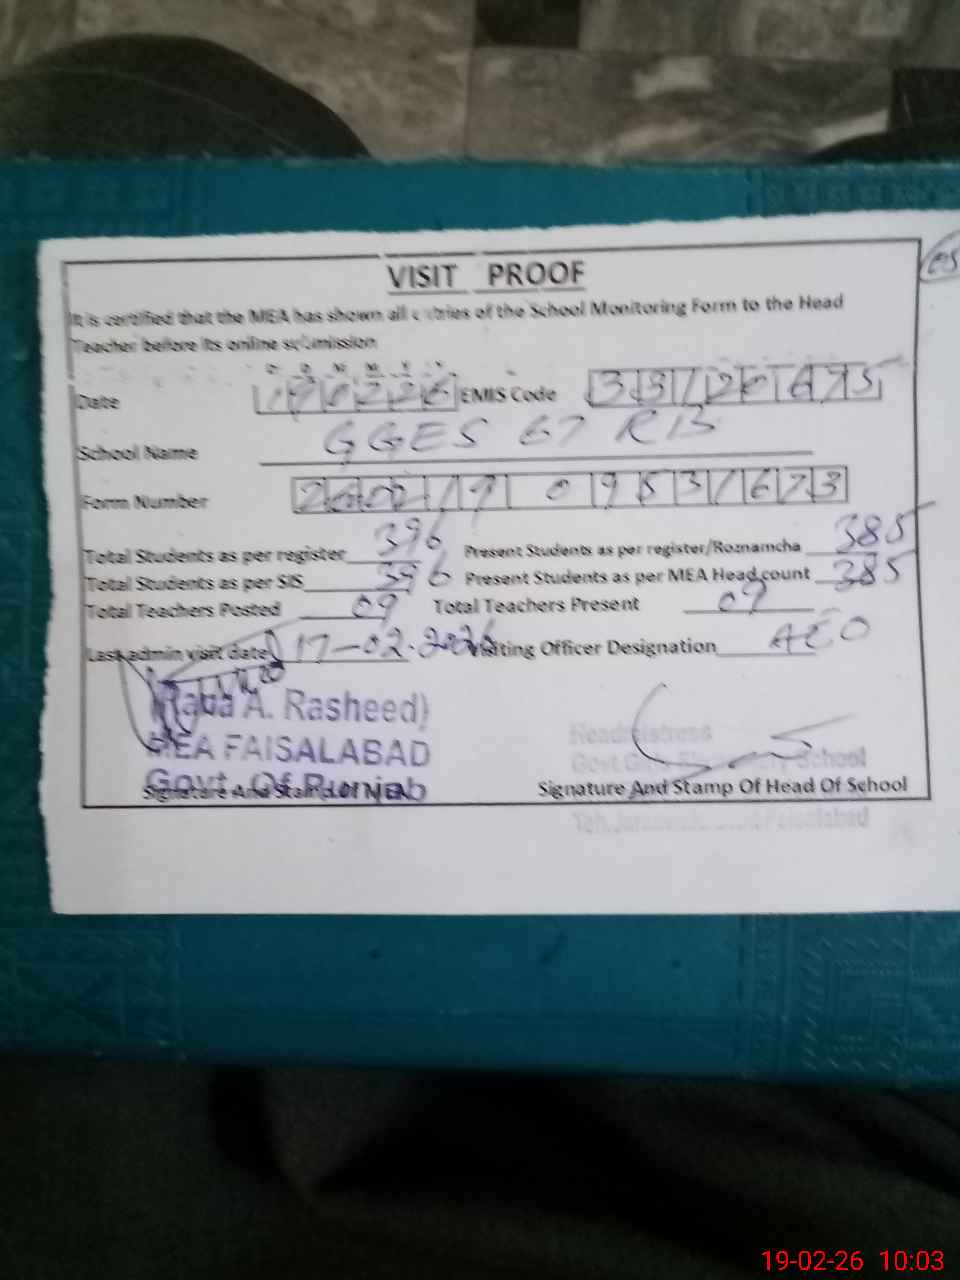 VISIT PROOF
It is certified that the MEA has shown all entries of the School Monitoring Form to the Head
Teacher before its online submission
D D M M Y Y
Date 190226 EMIS Code 33120675
School Name GGES 67 RB
Form Number
Total Students as per register 396 Present Students as per register/Roznamcha 385
Total Students as per SIS 396 Present Students as per MEA Head count 385
Total Teachers Posted 09 Total Teachers Present 09
Last admin visit date 17-02-2026 Visiting Officer Designation AEO
A. Rasheed)
MEA FAISALABAD
Govt. Of Punjab
Headmistress
Govt School
Signature And Stamp Of Head Of School
Faisalabad
19-02-26 10:03